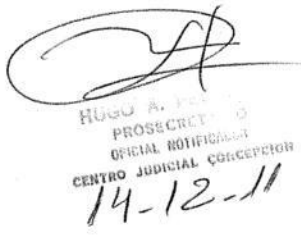 HUGO A.
PROSECRET
OFICIAL NOTIFICADOR
CENTRO JUDICIAL CONCEPCION
14-12-11